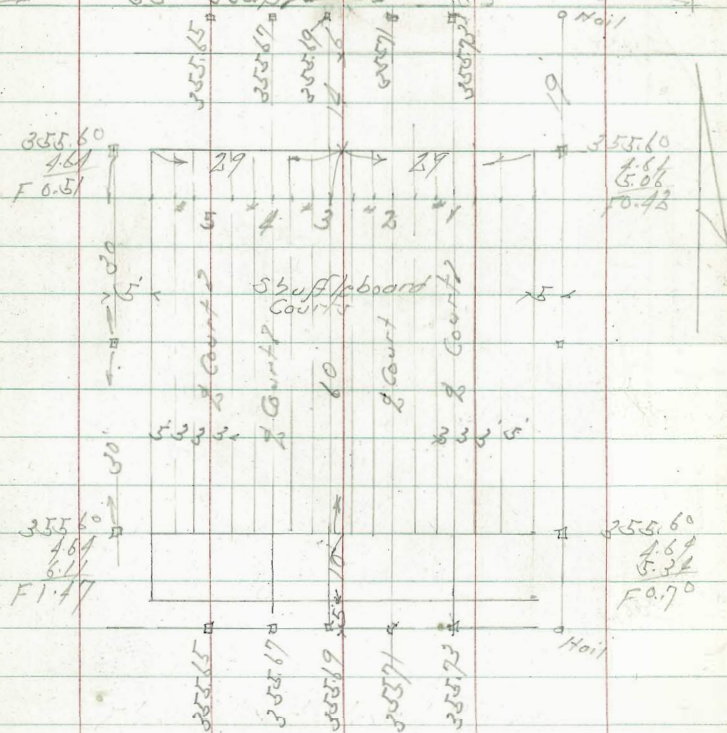 355.65
355.67
355.69
355.71
355.73
Nail
19
355.60
4.64
F 0.51
29
29
355.60
4.64
5.06
F 0.42
#5
#4
3
#2
#1
30
5'
Shuffleboard
Courts
5
℄ Court
℄ Court
60
℄ Court
℄ Court
5 3 3 3
3 3 3 5
30'
355.60
4.64
6.11
F 1.47
355.60
4.64
5.34
F 0.70
10
5
Nail
355.65
355.67
355.69
355.71
355.73